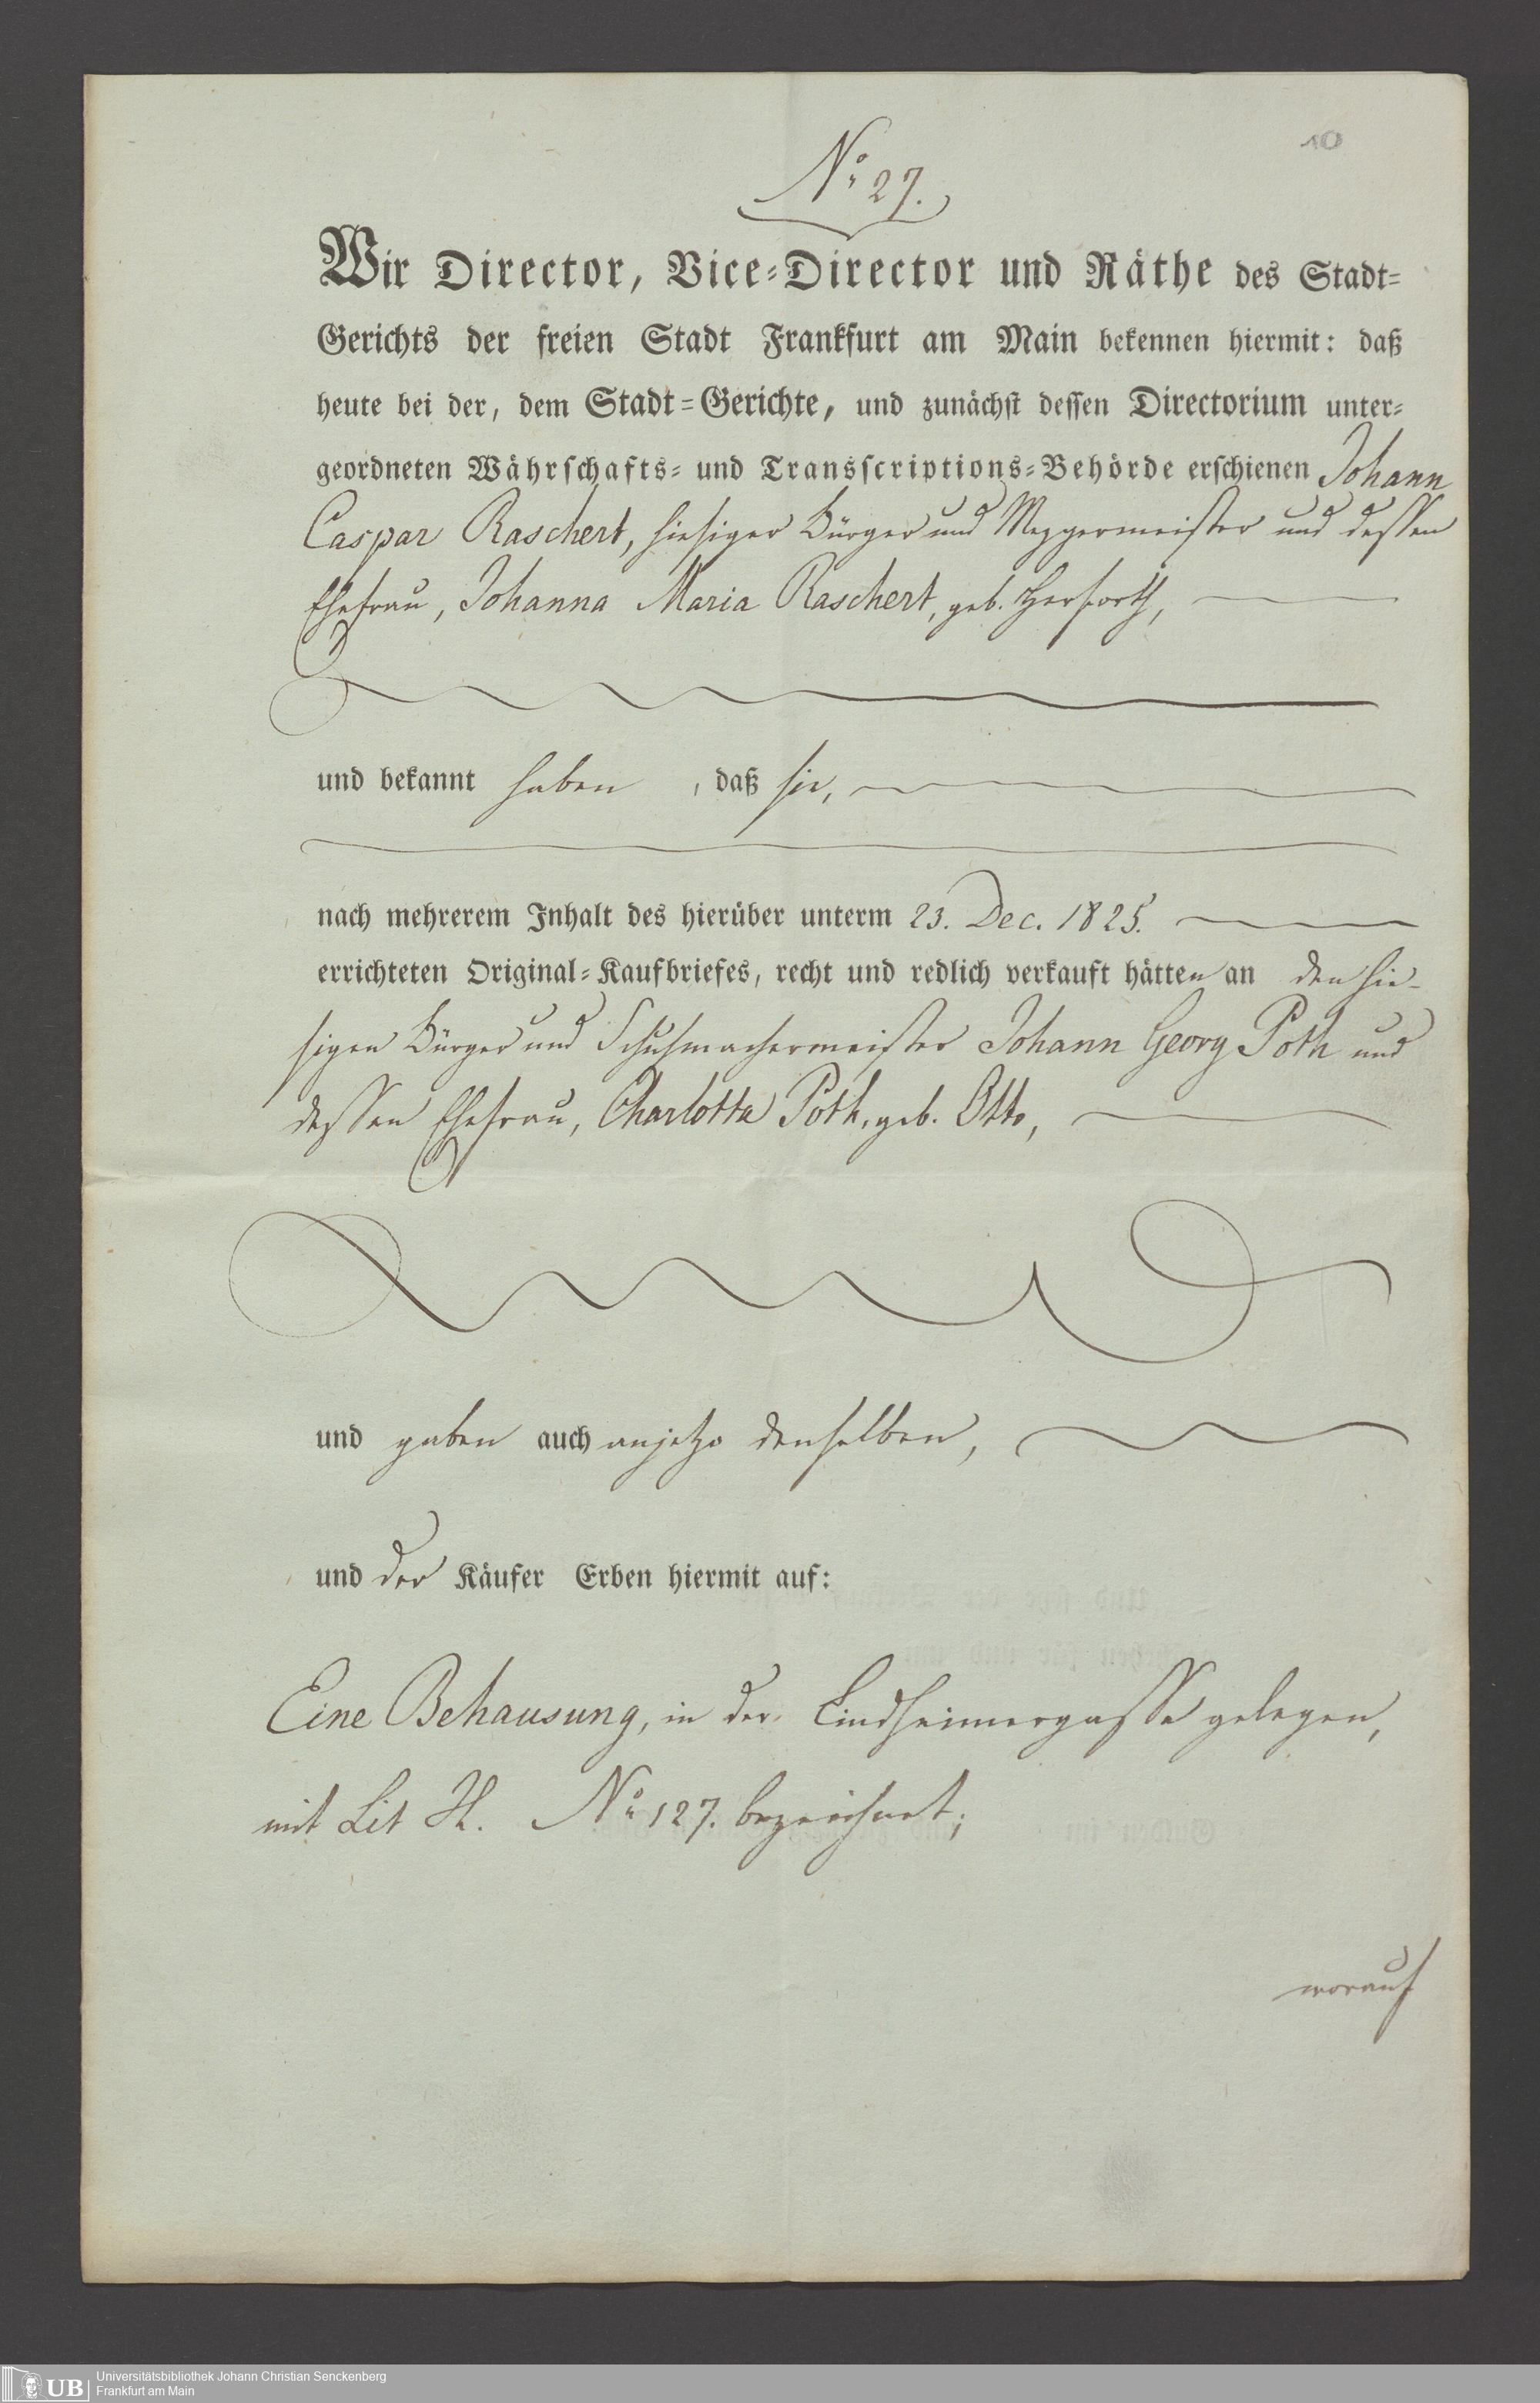 10
No 27.
Wir Director, Vice-Director und Räthe des Stadt-
Gerichts der freien Stadt Frankfurt am Main bekennen hiermit: daß
heute bei der, dem Stadt-Gerichte, und zunächst dessen Directorium unter-
geordneten Währschafts- und Transscriptions-Behörde erschienen Johann
Caspar Raschert, hiesiger Bürger und Mezgermeister und dessen
Ehefrau, Johanna Maria Raschert, geb. Herforth,
und bekannt haben, daß sie,
nach mehrerem Inhalt des hierüber unterm 23. Dec. 1825.
errichteten Original-Kaufbriefes, recht und redlich verkauft hätten an den hie-
sigen Bürger und Schuhmachermeister Johann Georg Poth und
dessen Ehefrau, Charlotta Poth, geb. Otto,
und gaben auch anjetzo denselben,
und der Käufer Erben hiermit auf:
Eine Behausung, in der Lindheimergasse gelegen,
mit Lit H. No 127. bezeichnet;
worauf
UB
Universitätsbibliothek Johann Christian Senckenberg
Frankfurt am Main